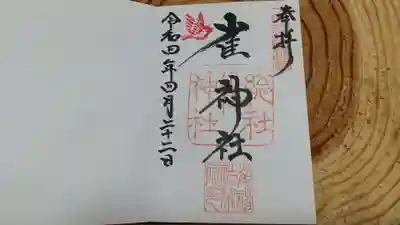 奉拝
雀神社
総社
雀神社
令和四年四月二十二日